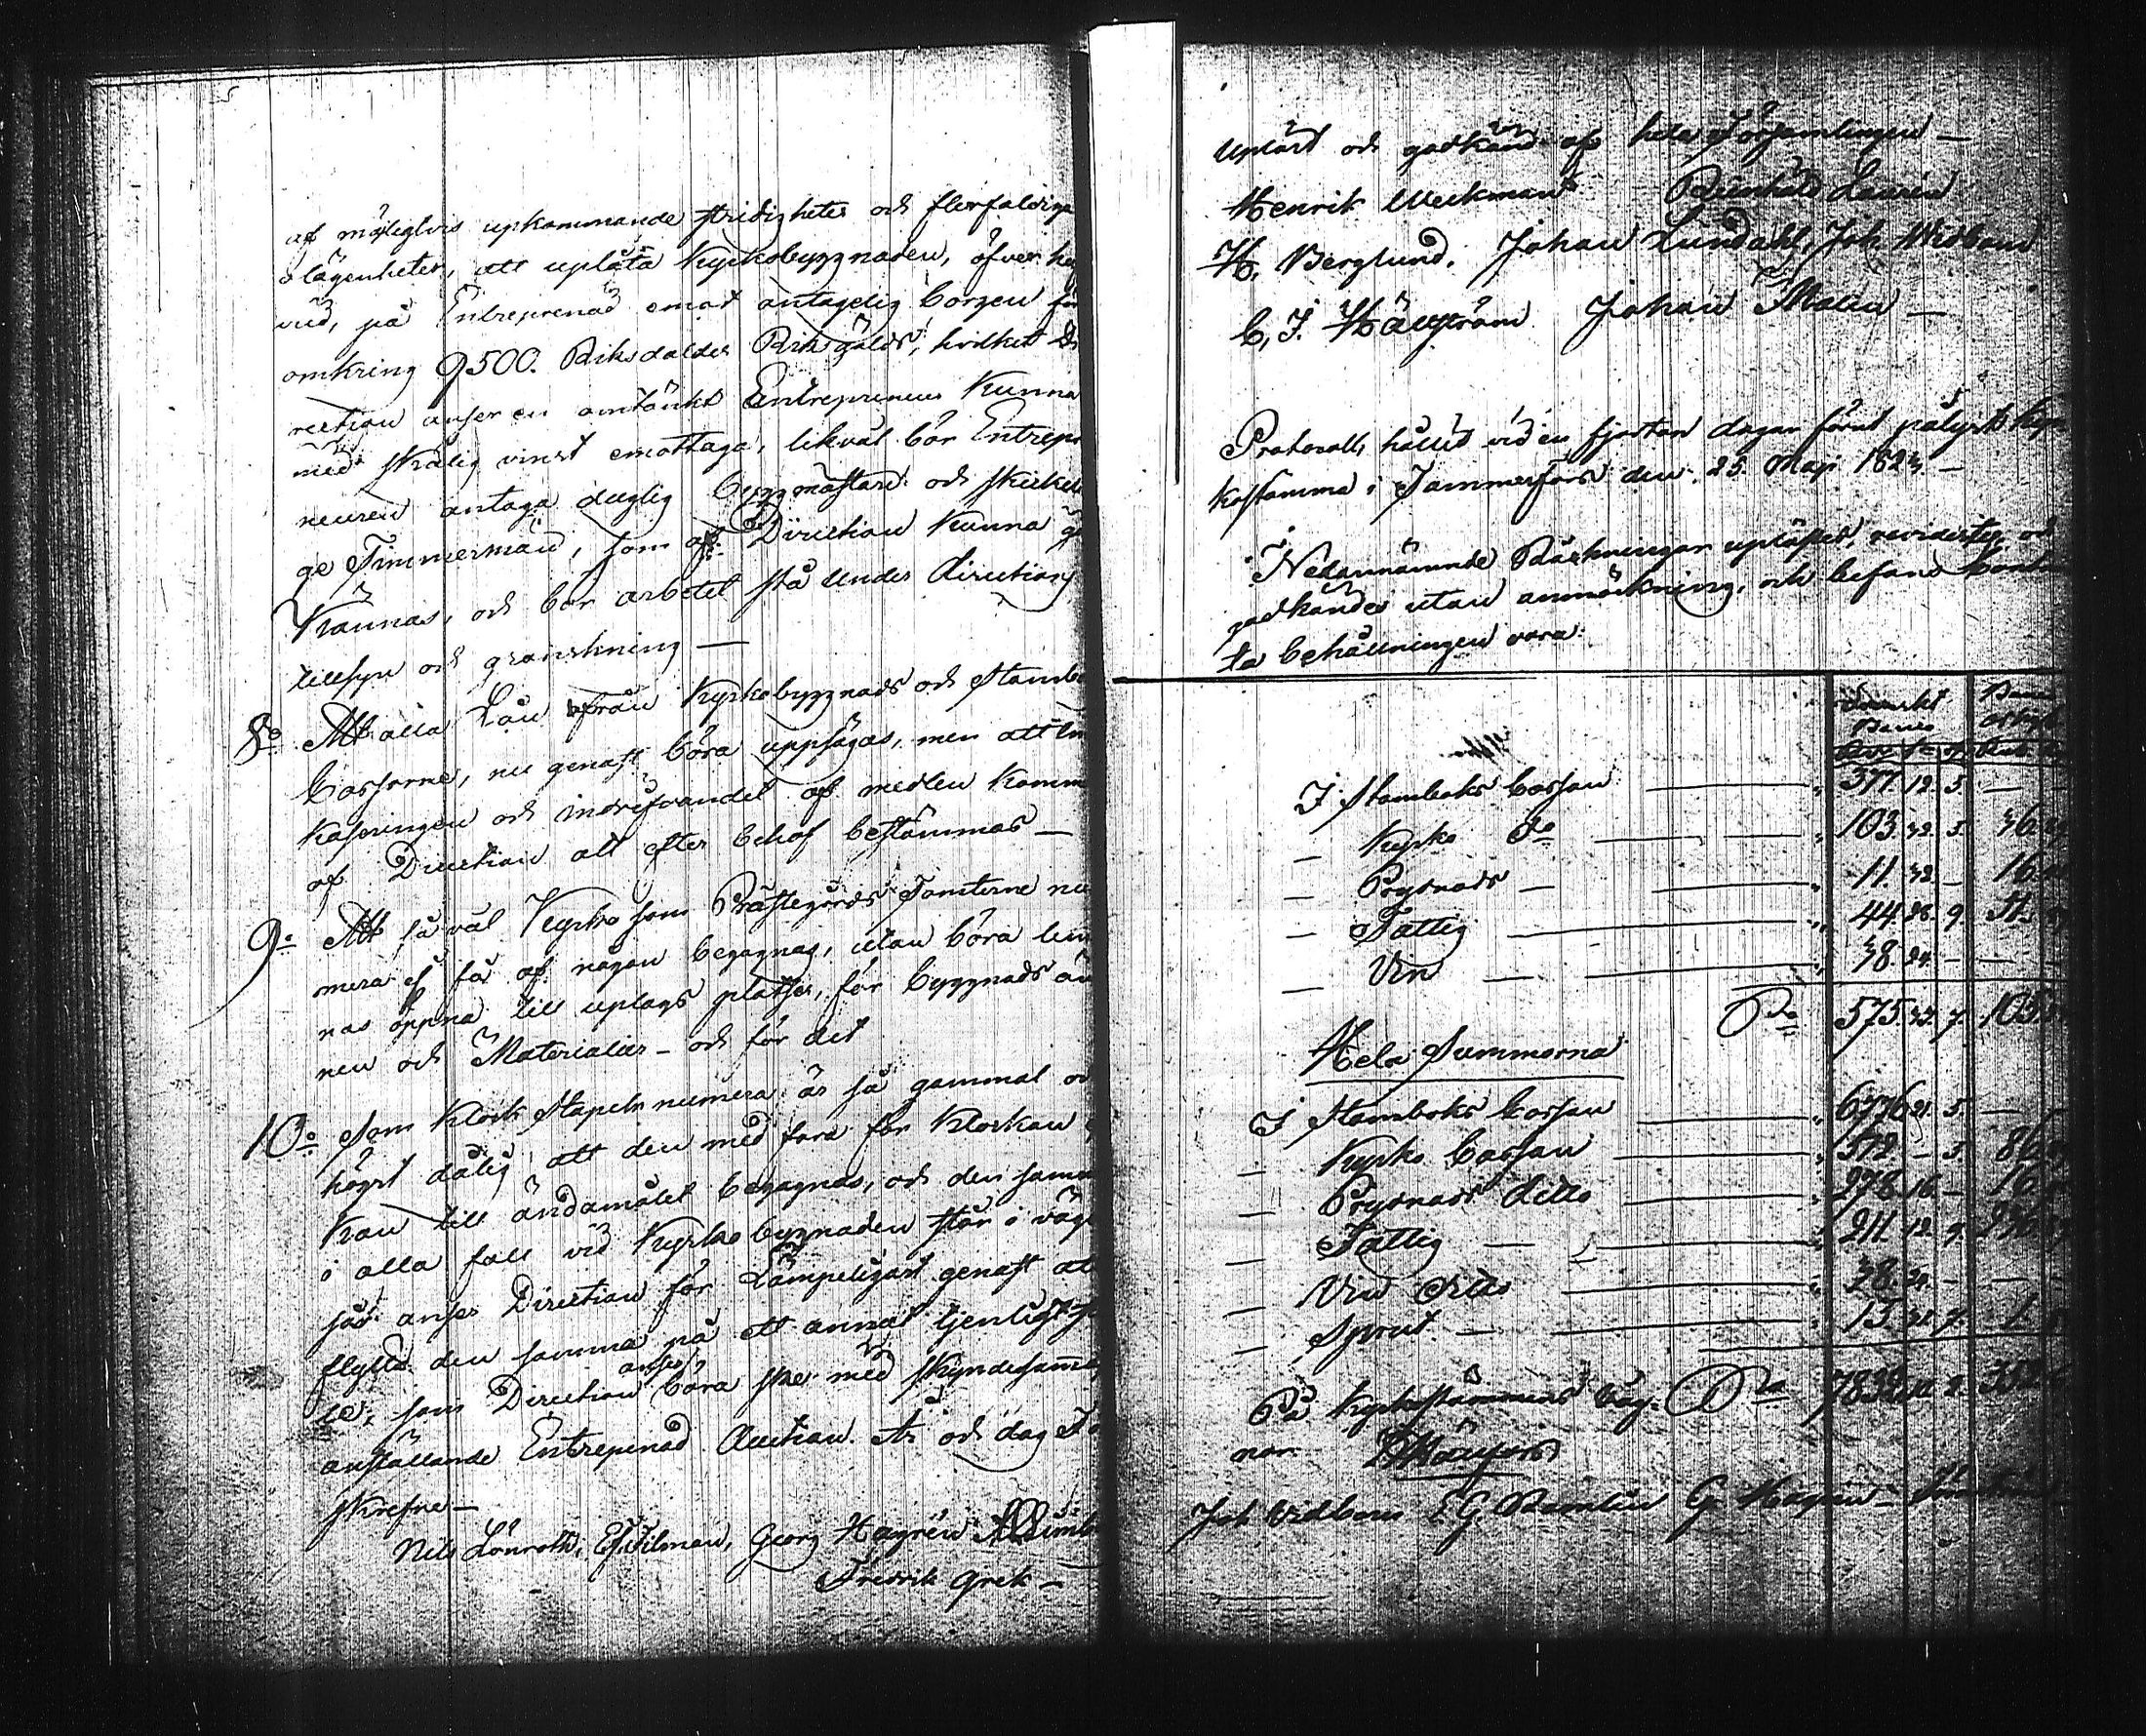 af möjligtvis upkommande stridigheter och flerfaldiga
olägenheter, att uplåta Kyrkobyggnaden, öfver huf
vud, på Entreprenad emot antagelig borgen för
omkring 9500. Riksdaler Riksgälds, hvilket Di
rection anser en omtänkt Entrepreneur Kunna
med skälig vinst emottaga, likväl bör Entrepre
neuren antaga duglig byggmästare och skickeli
ge Timmermän, som af Direction Kunna god
Kännas, och bör arbetet stå under Directions
tillsyn och granskning —
8o Att alla Lån från Kyrkobyggnads och Stambo
Cassorne, nu genast böra uppsägas, men att in
Kasseringen och indrifvandet af medlen Komma
af Direction att efter behof bestämmas —
9o Att så väl Kyrko som Prästegårds Tomterne nu
mera ej få af någon begagnas, utan böra lem
nas öppna till uplags platser, för byggnads äm
nen och Materialier — och för det
10o Som Klock Stapeln numera är så gammal och
högst dålig att den med fara för Klockan
Kan till ändamålet begagnas, och den samma
i alla fall vid Kyrko byggnaden står i vägen
så anser Direction för Lämpeligast genast att
flytta den samma på ett annat tjenligt
le, som Direction anser böra ske med skyndesammast
anställande Entreprenad Auction. År och dag
skrefne —
Nils Lönroth, Georg Hagrén
Fredrik Grek —
Upläst och godkänd af hela Församlingen —
Henrik Weckman Reinhold Lavén
H. Berglund. Johan Lundahl, Joh. Widbom
C. J. Hällström Johan Malin —
Protocoll, hållit vid en fjorton dagar förut pålyst Kyr
kostämma i Tammerfors den 25 Maji 1823 —
Nedannämnde Räkningar uplästes, reviderter och
godkändes utan anmärkning, och befans Contan
ta behållningen vara:
Svenskt Banco
I Stamboks Cassan — 377. 12. 5. —
— Kyrko Do — 103. 32. 5. 36
— Byggnads — 11. 32. — 16
— Fattig — 44. 28. 9.
— Vin — 38. 24. —
575. 33. 7. 105
Hela Summorna
I Stamboks Cassan — 6776 21. 5. —
— Kyrko Cassan — 512 — 5. 86
— Byggnads ditto — 278. 16. — 16
— Fattig — 211. 12. 9.
— Vin ditto — 38. 24. —
— Sprut — 15. 21. 7. 1
På Kyrkostämmans väg- 7832
nar
Joh Widbom G. Hagrén